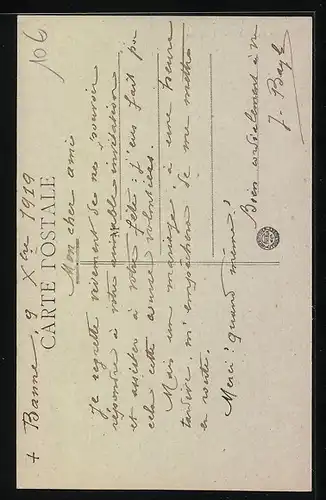 106
+ Banne, 9 Xbre 1919
CARTE POSTALE
Mon cher ami
Je regrette vivement de ne pouvoir
répondre à votre aimable invitation
et assister à votre fête : j'eus fait pour
cela cette course volontiers.
Mais un mariage à une heure
tardive m'empêchera de me mettre
en route.
Merci ! quand même !
Bien cordialement à v
J. Bayle